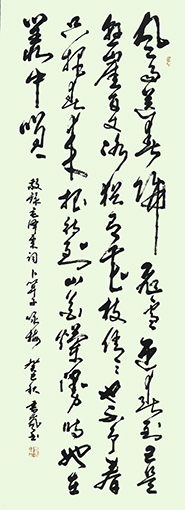 風雨送春歸飛雪迎春到已是
懸崖百丈冰猶有花枝俏々也不爭春
只把春來報待到山花爛漫時她在
叢中笑
敬錄毛澤東詞卜算子咏梅 癸巳秋